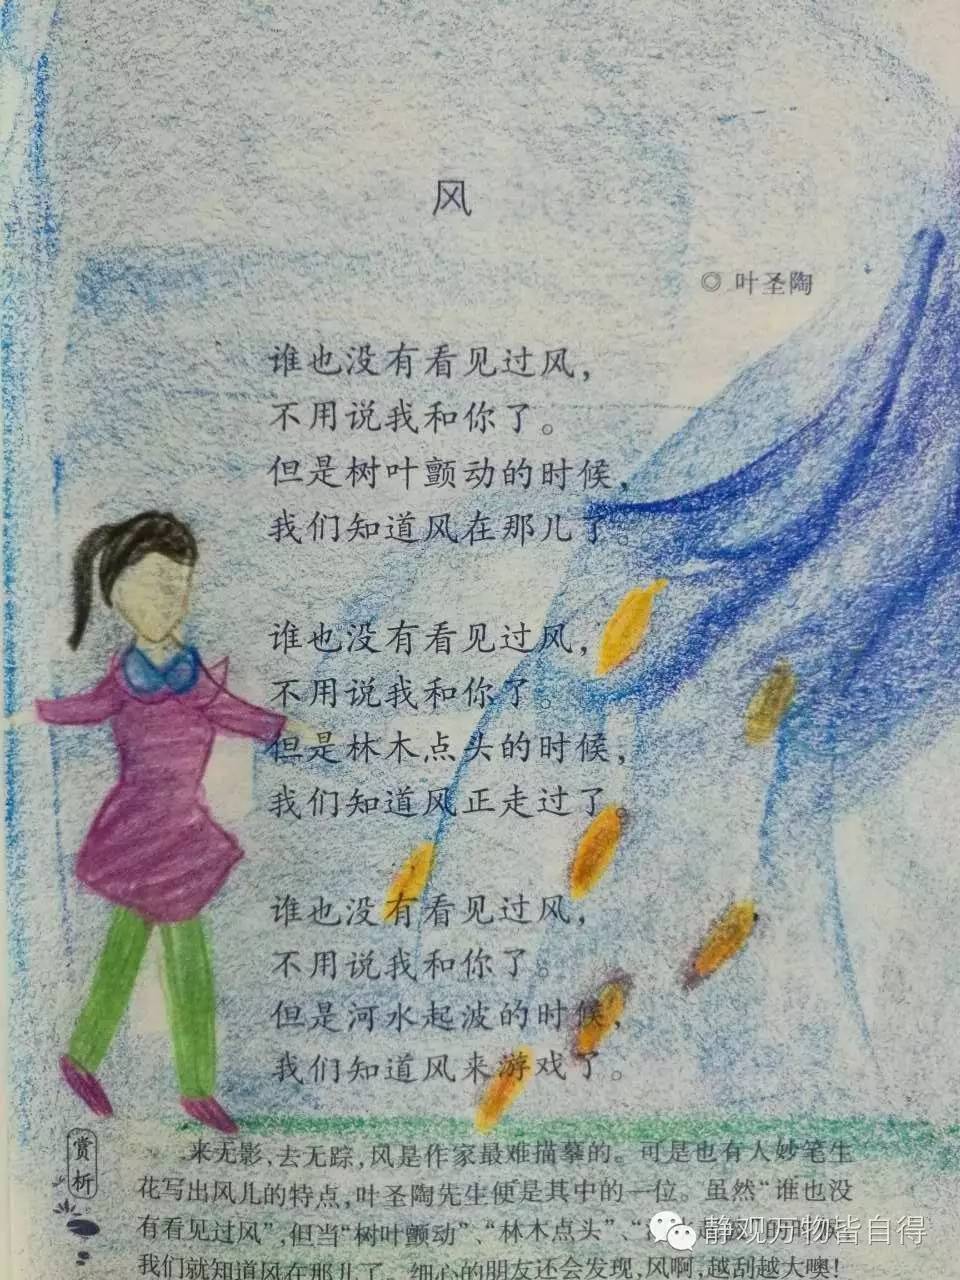 风
◎ 叶圣陶
谁也没有看见过风，
不用说我和你了。
但是树叶颤动的时候，
我们知道风在那儿了。
谁也没有看见过风，
不用说我和你了。
但是林木点头的时候，
我们知道风正走过了。
谁也没有看见过风，
不用说我和你了。
但是河水起波的时候，
我们知道风来游戏了。
赏析
来无影，去无踪，风是作家最难描摹的。可是也有人妙笔生
花写出风儿的特点，叶圣陶先生便是其中的一位。虽然“谁也没
有看见过风”，但当“树叶颤动”、“林木点头”、
我们就知道风在那儿了。细心的朋友还会发现，风啊，越刮越大噢！
静观万物皆自得